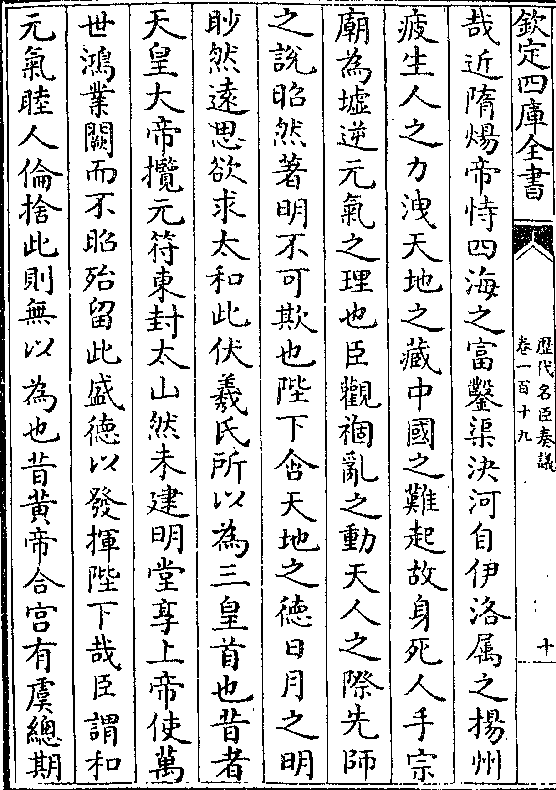 欽定四庫全書
歴代名臣奏議
卷一百十九
十
哉近隋煬帝恃四海之富鑿渠決河自伊洛属之揚州
疲生人之力洩天地之藏中國之難起故身死人手宗
廟為墟逆元氣之理也臣觀禍亂之動天人之際先師
之說昭然著明不可欺也陛下含天地之德日月之明
眇然遠思欲求太和此伏羲氏所以為三皇首也昔者
天皇大帝攬元符東封太山然未建明堂享上帝使萬
世鴻業闕而不昭殆留此盛德以發揮陛下哉臣謂和
元氣睦人倫捨此則無以為也昔黄帝合宫有虞總期